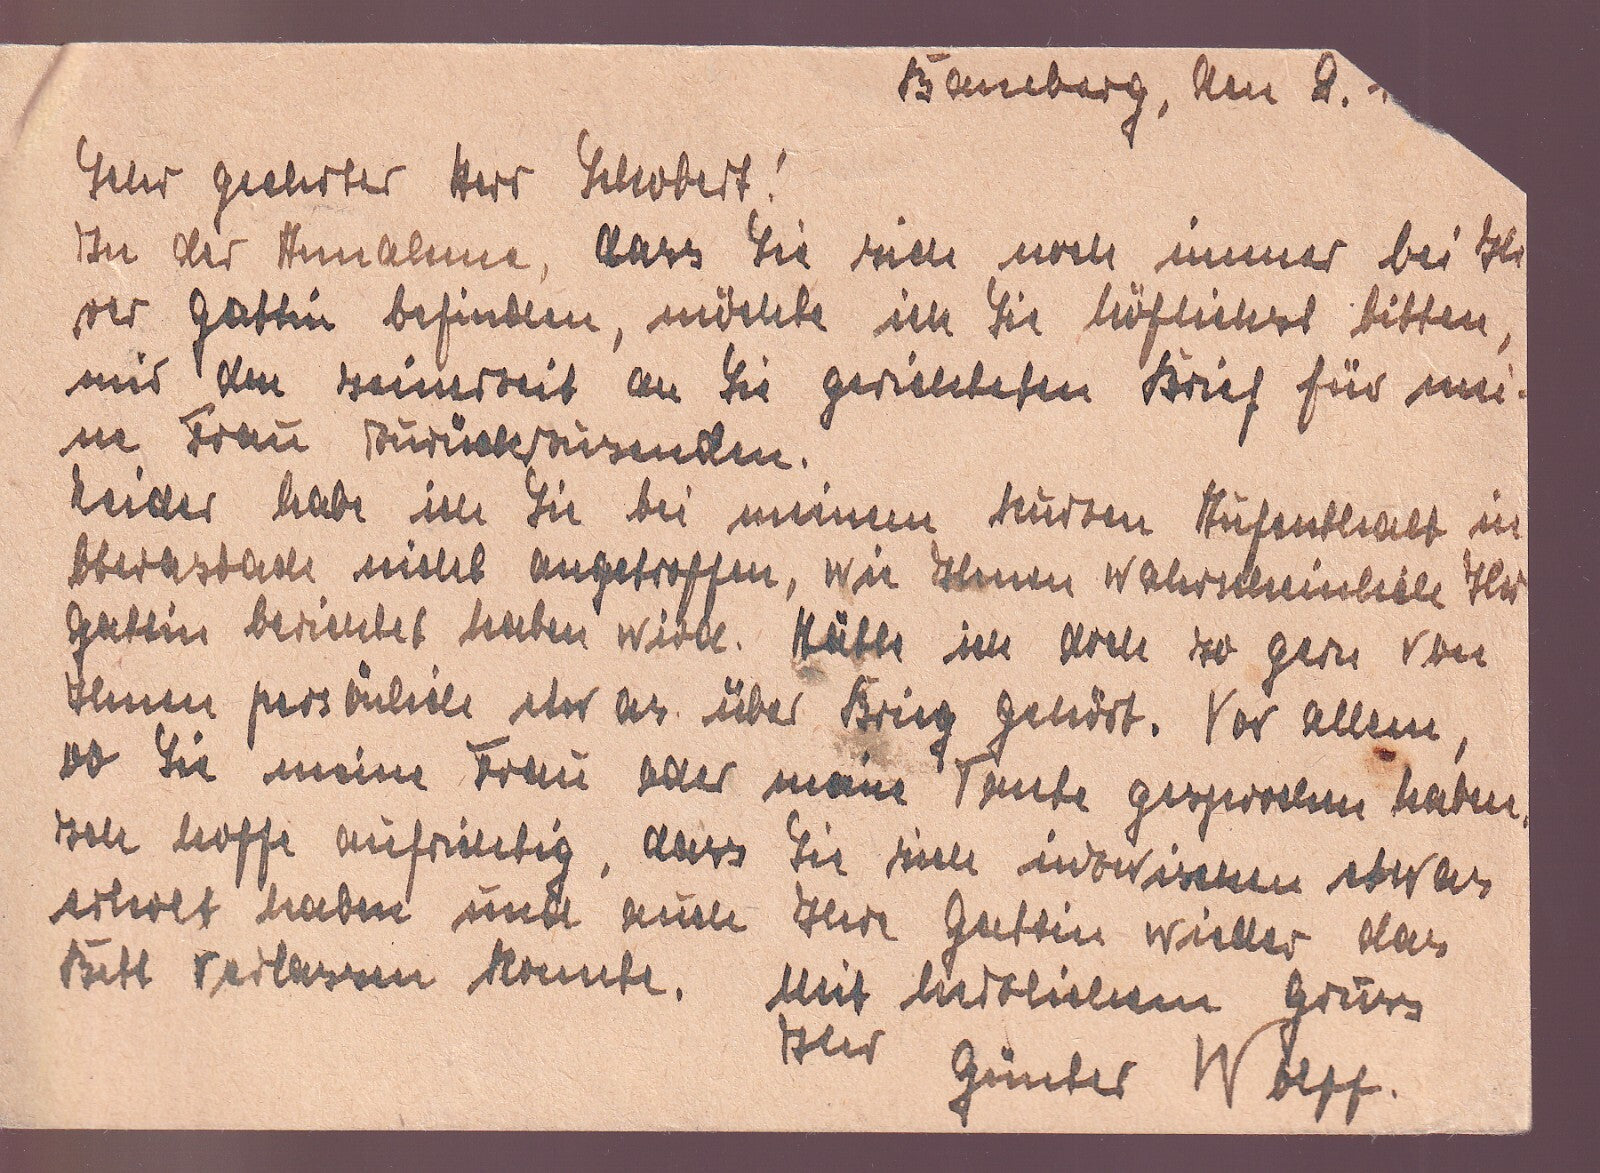 Bamberg, den 2.
Sehr geehrter Herr Schobert!
In der Annahme, dass Sie sich noch immer bei Ih
rer Gattin befinden, möchte ich Sie höflichst bitten,
mir den seinerzeit an Sie gerichteten Brief für mei-
ne Frau zurückzusenden.
Leider habe ich Sie bei meinem kurzen Aufenthalt in
nicht angetroffen, wie Ihnen wahrscheinlich Ihre
Gattin berichtet haben wird. Hätte ich doch so gern von
Ihnen persönlich etwas über Brieg gehört. Vor allem,
ob Sie meine Frau oder meine Tante gesprochen haben.
Ich hoffe aufrichtig, dass Sie sich inzwischen etwas
erholt haben und auch Ihre Gattin wieder das
Bett verlassen konnte. Mit herzlichem Gruss
Ihr Günter Wolff.